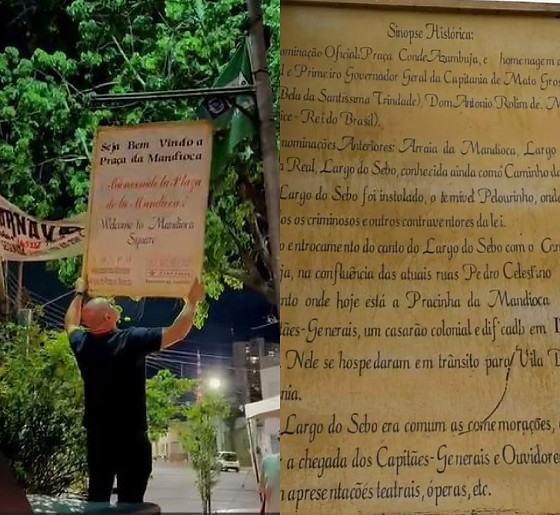 Seja Bem Vindo a
Praça da Mandioca
Bienvenido la Plaza
de la Mandioca!
Welcome to Mandioca
Square
Sinopse Histórica:
ominação Oficial:Praça Conde Azambuja, e homenagem a
l e Primeiro Governador Geral da Capitania de Mato Gros
Bela da Santíssima Trindade), Dom Antonio Rolim de.
ice-Rei do Brasil).
nominações Anteriores: Arraia da Mandioca, Largo
a Real, Largo do Sebo, conhecida ainda como Caminho d
Largo do Sebo foi instalado, o temível Pelourinho, ond
os os criminosos e outros contraventores da lei.
o entrocamento do canto do Largo do Sebo com o
ja, na confluência das atuais ruas Pedro Celestino
nto onde hoje está a Pracinha da Mandioca
ães-Generais, um casarão colonial edificado em
Nele se hospedaram em trânsito para Vila
nia.
Largo do Sebo era comum as comemorações,
a chegada dos Capitães-Generais e Ouvidores
apresentações teatrais, óperas, etc.